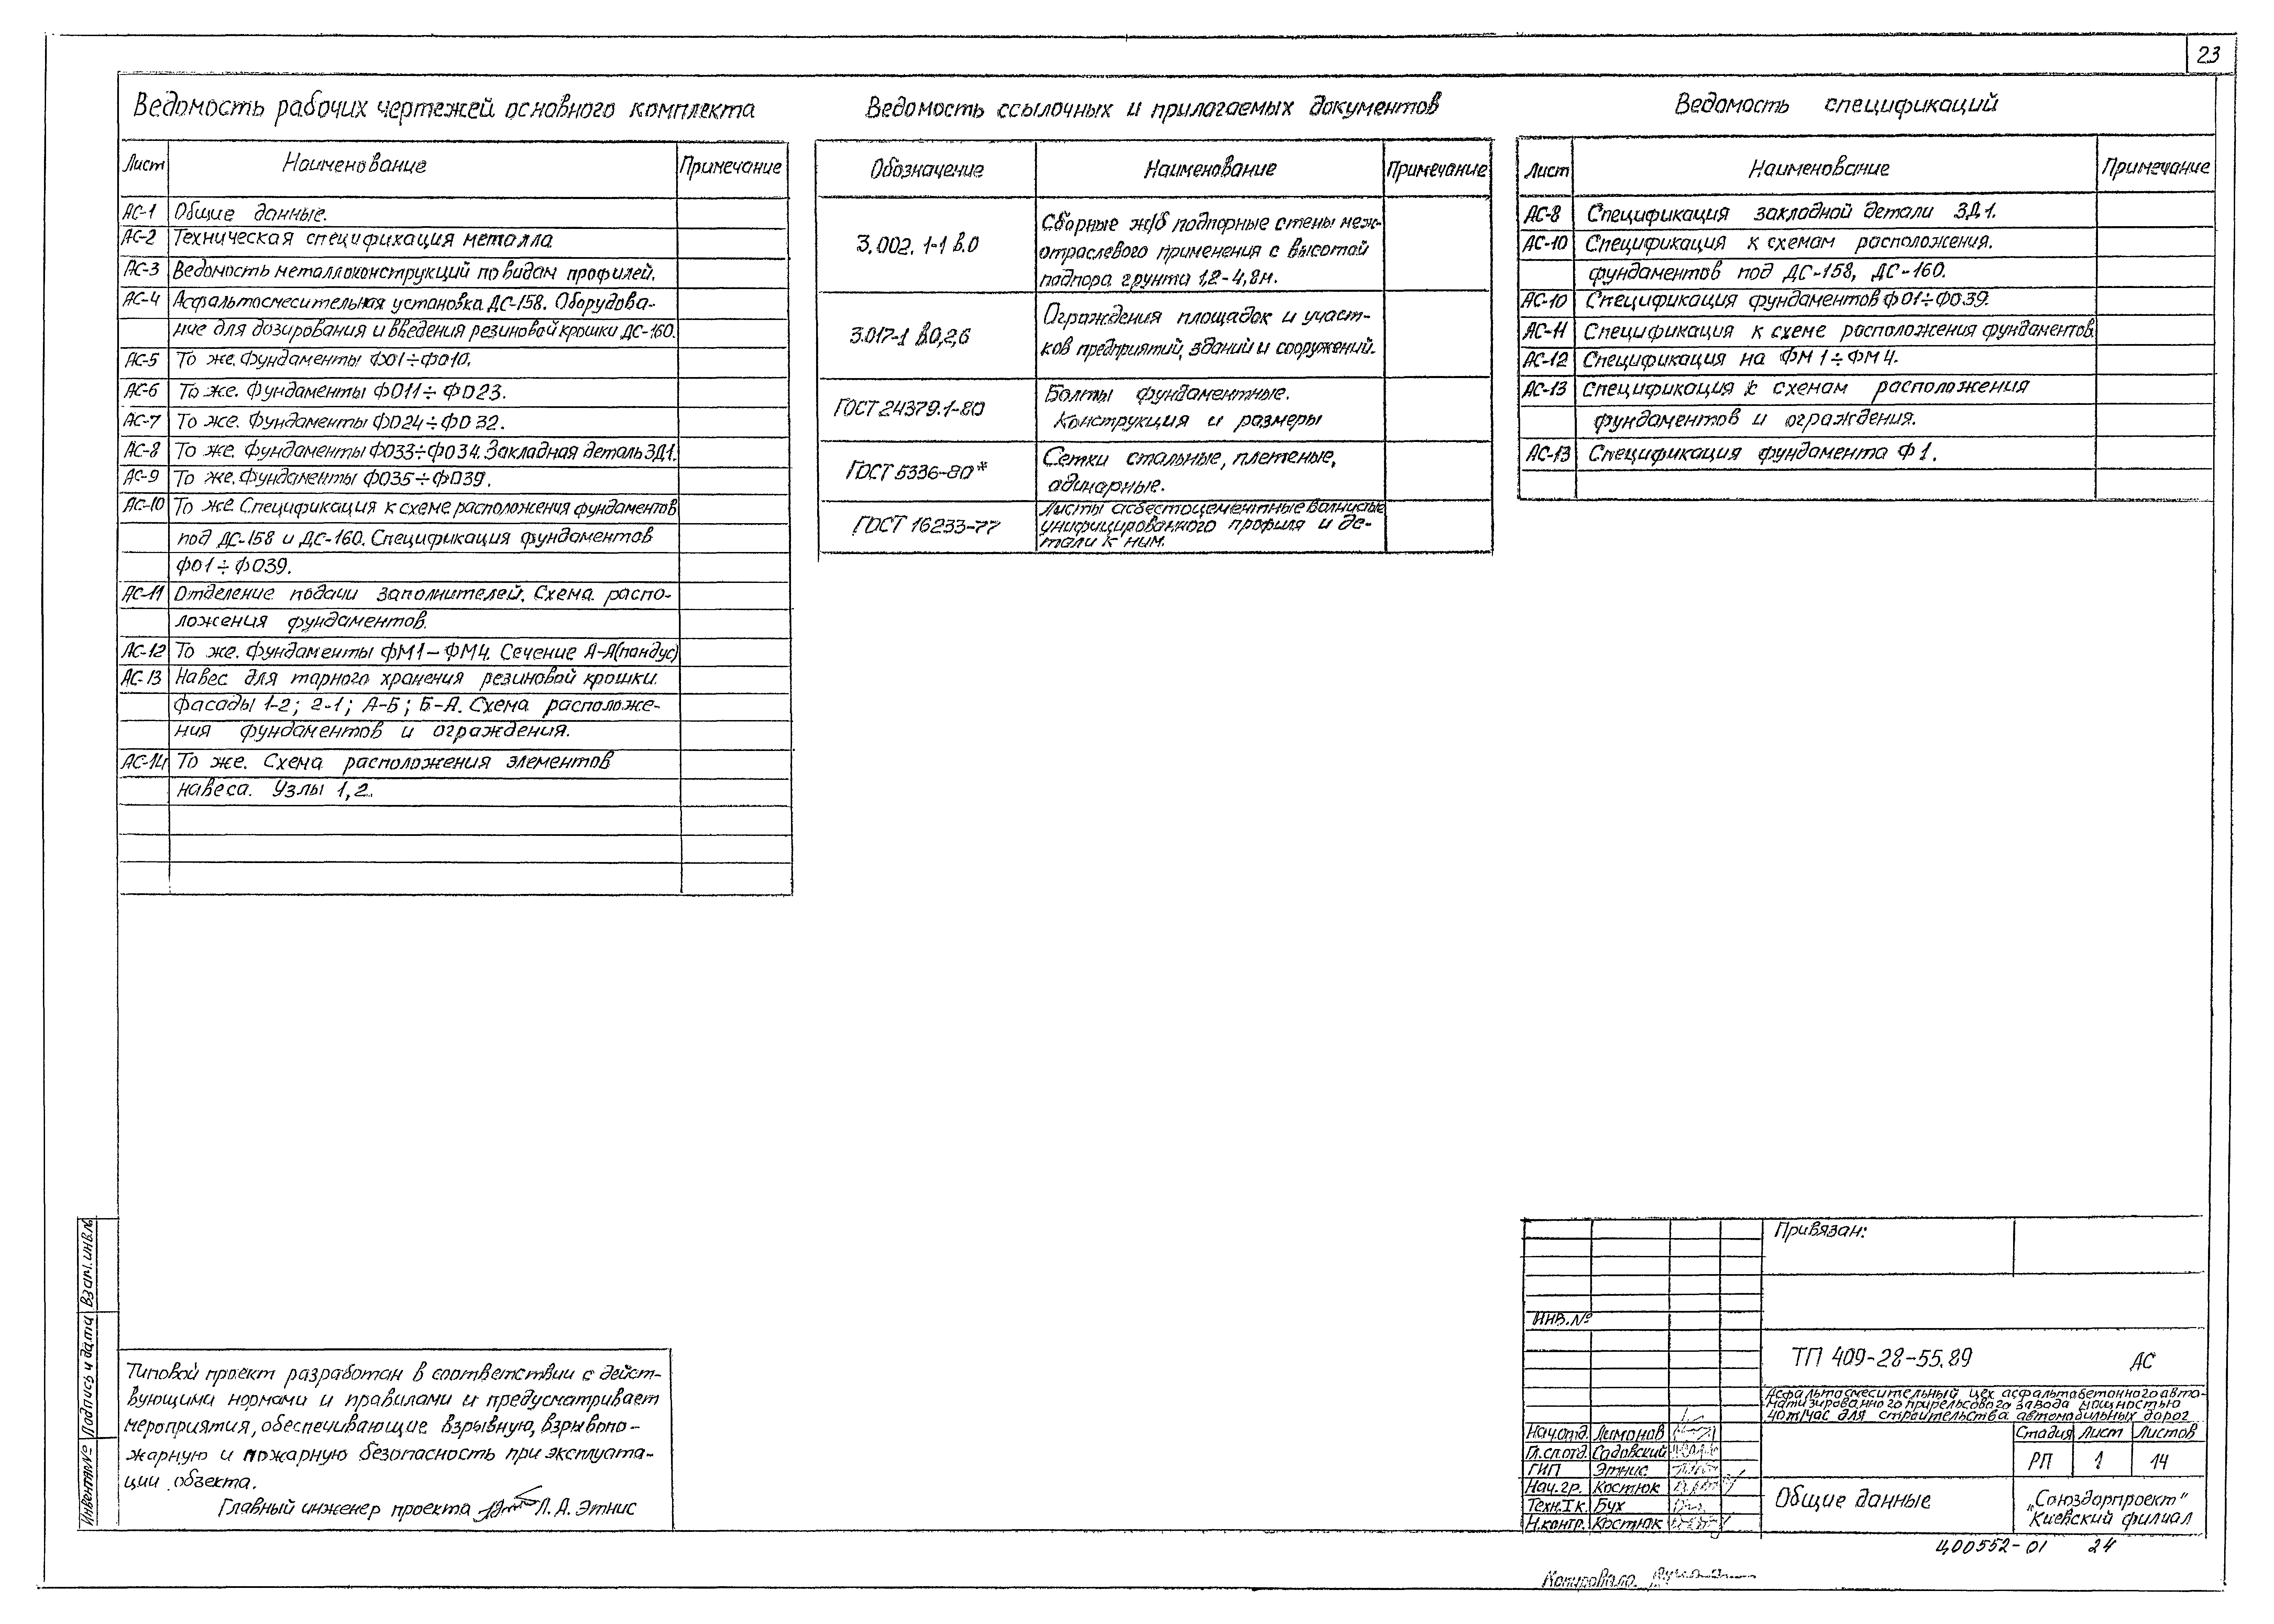 23
Ведомость рабочих чертежей основного комплекта
Лист Наименование Примечание
АС-1 Общие данные.
АС-2 Техническая спецификация металла
АС-3 Ведомость металлоконструкций по видам профилей.
АС-4 Асфальтосмесительная установка ДС-158. Оборудова-
ние для дозирования и введения резиновой крошки ДС-160.
АС-5 То же. Фундаменты ФО1÷ФО10.
АС-6 То же. Фундаменты ФО11÷ФО23.
АС-7 То же. Фундаменты ФО24÷ФО32.
АС-8 То же. Фундаменты ФО33÷ФО34. Закладная деталь ЗД1.
АС-9 То же. Фундаменты ФО35÷ФО39.
АС-10 То же. Спецификация к схеме расположения фундаментов
под ДС-158 и ДС-160. Спецификация фундаментов
ФО1÷ФО39.
АС-11 Отделение подачи заполнителей. Схема распо-
ложения фундаментов.
АС-12 То же. Фундаменты ФМ1–ФМ4. Сечение А-А(пандус)
АС-13 Навес для тарного хранения резиновой крошки.
Фасады 1-2; 2-1; А-Б; Б-А. Схема расположе-
ния фундаментов и ограждения.
АС-14 То же. Схема расположения элементов
навеса. Узлы 1,2.
Ведомость ссылочных и прилагаемых документов
Обозначение Наименование Примечание
3.002.1-1 в.0 Сборные ж/б подпорные стены меж-
отраслевого применения с высотой
подпора грунта 1,2-4,8м.
3.017-1 в.0,2,6 Ограждения площадок и участ-
ков предприятий, зданий и сооружений.
ГОСТ 24379.1-80 Болты фундаментные.
Конструкция и размеры
ГОСТ 5336-80* Сетки стальные, плетеные,
одинарные.
ГОСТ 16233-77 Листы асбестоцементные волнистые
унифицированного профиля и де-
тали к ним.
Ведомость спецификаций
Лист Наименование Примечание
АС-8 Спецификация закладной детали ЗД1.
АС-10 Спецификация к схемам расположения.
фундаментов под ДС-158, ДС-160.
АС-10 Спецификация фундаментов ФО1÷ФО39.
АС-11 Спецификация к схеме расположения фундаментов.
АС-12 Спецификация на ФМ1÷ФМ4.
АС-13 Спецификация к схемам расположения
фундаментов и ограждения.
АС-13 Спецификация фундамента Ф1.
Инвентар№ Подпись и дата Взам.инв.№
Типовой проект разработан в соответствии с дейст-
вующими нормами и правилами и предусматривает
мероприятия, обеспечивающие взрывную, взрывопо-
жарную и пожарную безопасность при эксплуата-
ции объекта.
Главный инженер проекта Л.А. Этнис
Привязан:
Инв.№
ТП 409-28-55.89 АС
Асфальтосмесительный цех асфальтобетонного авто-
матизированного прирельсового завода мощностью
40т/час для строительства автомобильных дорог
Нач.отд. Лимонов
Гл.сп.отд. Садовский
ГИП Этнис
Нач.гр. Костюк
Техн.Iк. Бух
Н.контр. Костюк
Стадия Лист Листов
РП 1 14
Общие данные
„Союздорпроект"
Киевский филиал
Ц00552-01 24
Копировала